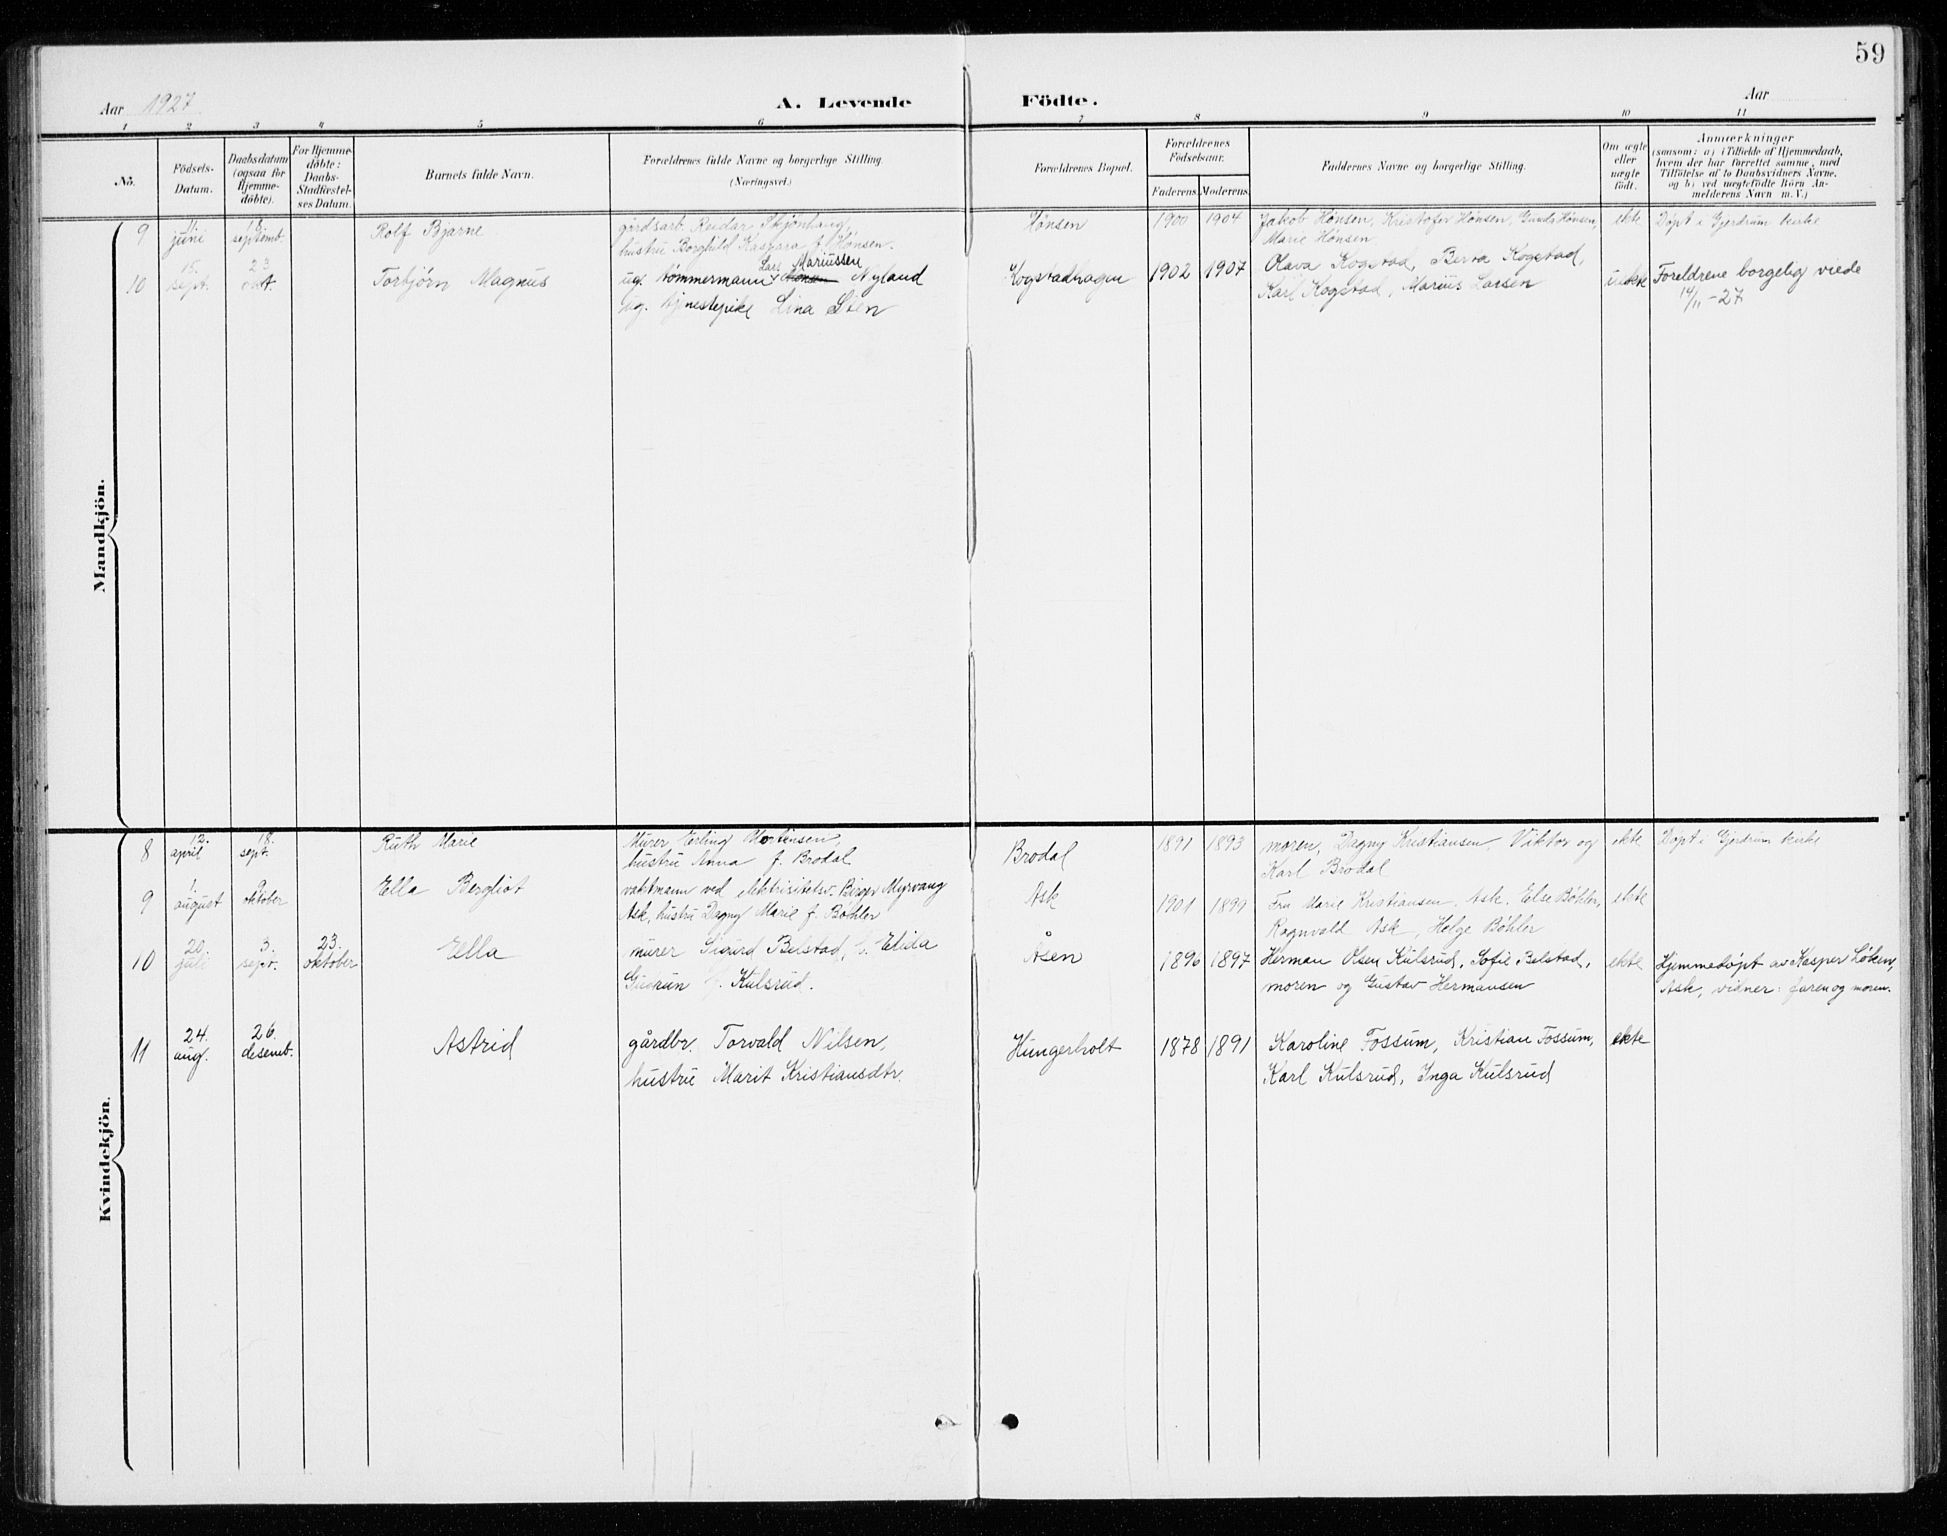 59
Aar 1927
A. Levende Födte.
Aar
1 2 3 4 5 6 7 8 9 10 11
No.
Födsels-
Datum.
Daabsdatum
(ogsaa for
Hjemme-
døbte).
For Hjemme-
döbte:
Daabs-
Stadfæstel-
ses Datum.
Barnets fulde Navn.
Forældrenes fulde Navne og borgerlige Stilling.
(Næringsvei.)
Forældrenes Bopæl.
Forældrenes
Födselsaar.
Faderens. Moderens.
Faddernes Navne og borgerlige Stilling.
Om ægte
eller
uægte
födt.
Anmærkninger
(saasom: a) i Tilfælde af Hjemmedaab,
hvem der har forrettet samme, med
Tilföielse af to Daabsvidners Navne,
og b) ved uægtefödte Börn An-
melderens Navn m. V.)
Mandkjön.
9 11. juni 18. septemb. Rolf Bjarne gårdsarb. Reidar Skjønhaug, Hønsen 1900 1904 Jakob Hønsen, Kristofer Hønsen, Hønsen, ekte Døpt i Gjerdrum kirke
hustru Borghild Kaspara f. Hønsen. Marie Hønsen
10 15. sept. 23. okt. Torbjørn Magnus ug. tømmermann Lars Mariussen Nyland Kogstadhagen 1902 1907 Olava Kogstad, Berta Kogstad, uekte Foreldrene borgelig viede
ug. tjenestepike Lina Sten Karl Kogstad, Marius Larsen 14/11-27
Kvindekjön.
8 12. april 18. sept. Ruth Marie Murer Erling Mortensen, Brodal 1891 1893 moren, Dagny Kristiansen, Viktor og ekte Døpt i Gjerdrum kirke
hustru Anna f. Brodal Karl Brodal
9 1. august 9. oktober Ella Bergliot vaktmann ved elektrisitetsv. Birger Myrvang Ask 1901 1899 Fru Marie Kristiansen, Ask, Else Bøhler, ekte
Ask, hustru Dagny Marie f. Bøhler Ragnvald Ask, Helge Bøhler
10 20. juli 3. sept. 23. oktober Ella murer Sigurd Belstad, h. Elida Åsen 1896 1897 Herman Olsen Kulsrud, Sofie Belstad, ekte Hjemmedøpt av Kasper Løken,
Gudrun f. Kulsrud. moren og Gustav Hermansen Ask, vidner: faren og moren.
11 24. aug. 26. desemb. Astrid gårdbr. Torvald Nilsen, Hungerholt 1878 1891 Karoline Fossum, Kristian Fossum, ekte
hustru Marit Kristiansdtr. Karl Kulsrud, Inga Kulsrud